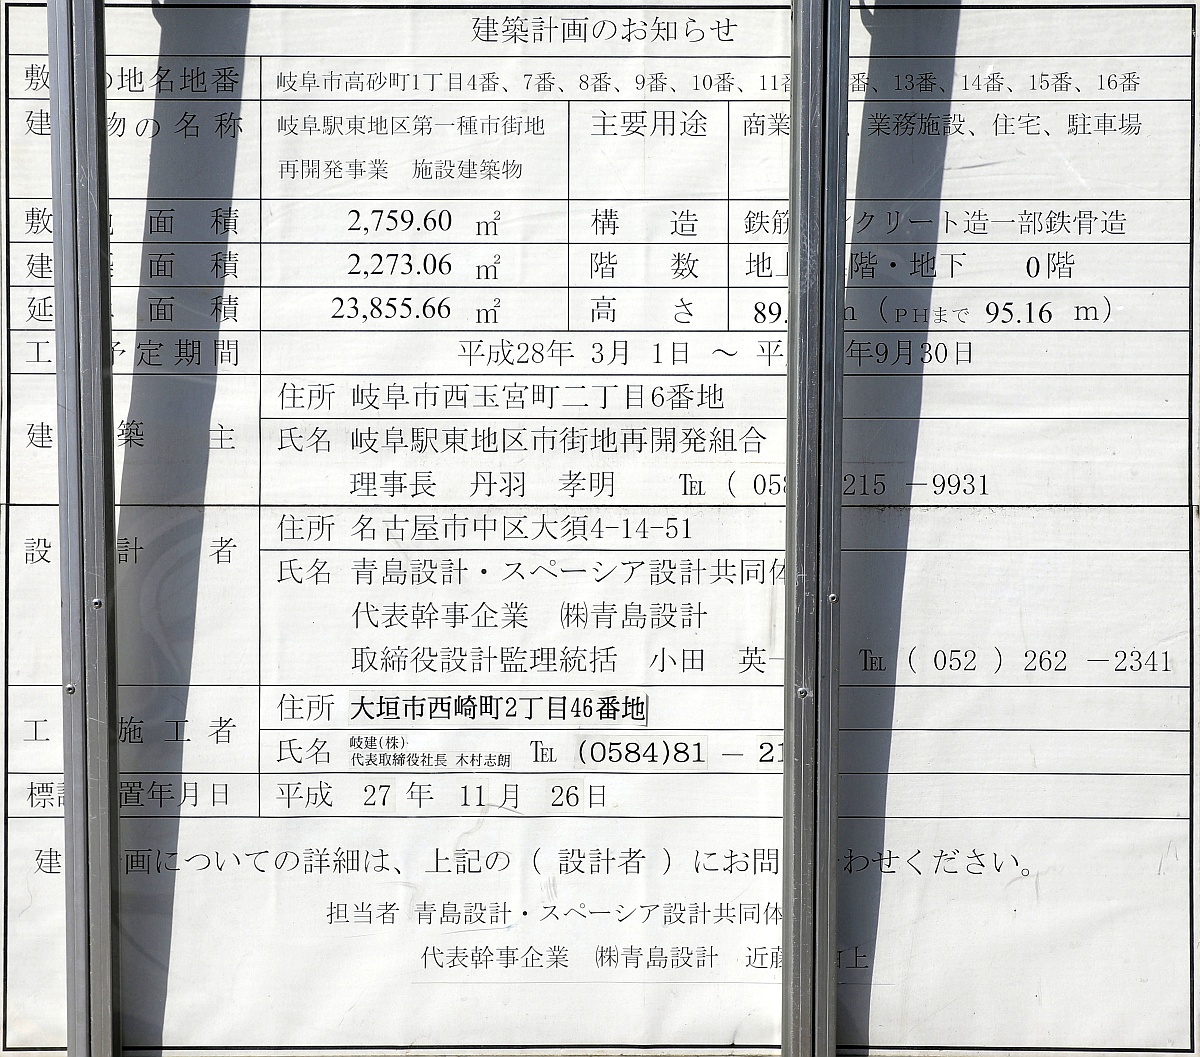 建築計画のお知らせ
敷 の地名地番 岐阜市高砂町1丁目4番、7番、8番、9番、10番、11番 番、13番、14番、15番、16番
建 物の名称 岐阜駅東地区第一種市街地 主要用途 商業 、業務施設、住宅、駐車場
再開発事業 施設建築物
敷 面積 2,759.60 ㎡ 構造 鉄筋 ンクリート造一部鉄骨造
建 面積 2,273.06 ㎡ 階数 地上 階・地下 0階
延 面積 23,855.66 ㎡ 高さ 89. m (PHまで 95.16 m)
工 予定期間 平成28年 3月 1日 ～ 平 年9月30日
住所 岐阜市西玉宮町二丁目6番地
建築主 氏名 岐阜駅東地区市街地再開発組合
理事長 丹羽 孝明 ℡ ( 058 215 －9931
住所 名古屋市中区大須4-14-51
設計者 氏名 青島設計・スペーシア設計共同体
代表幹事企業 ㈱青島設計
取締役設計監理統括 小田 英一 ℡ ( 052 ) 262 －2341
住所 大垣市西崎町2丁目46番地
工 施工者 氏名 岐建(株)
代表取締役社長 木村志朗 ℡ (0584)81 － 21
標 置年月日 平成 27 年 11 月 26日
建 画についての詳細は、上記の ( 設計者 ) にお問 わせください。
担当者 青島設計・スペーシア設計共同体
代表幹事企業 ㈱青島設計 近藤 上